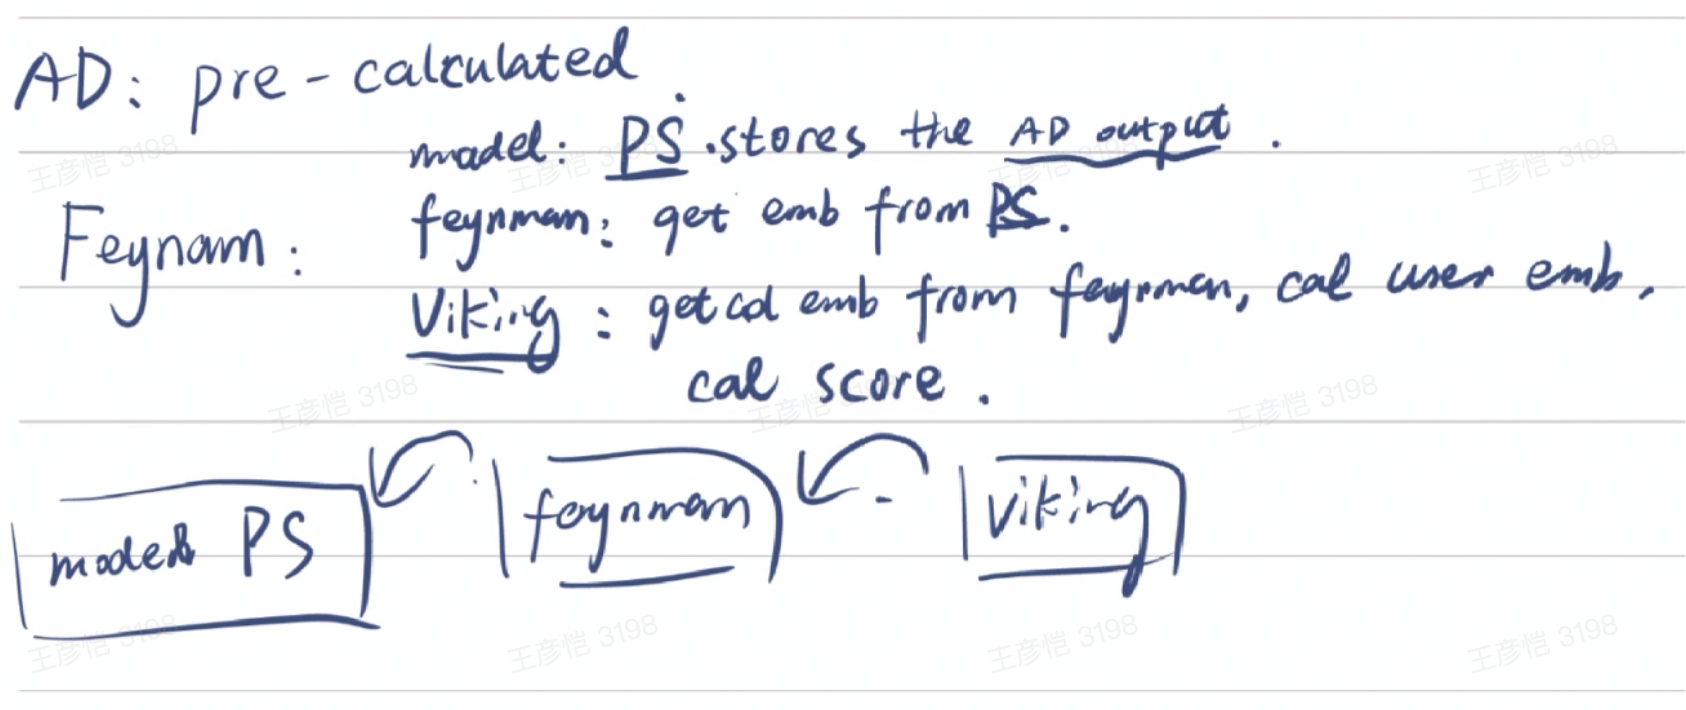 AD: pre-calculated
model: PS. stores the AD output.
Feynam: feynman: get emb from PS.
Viking: get ad emb from feynman, cal user emb.
cal score.
model PS feynman viking
王彦恺 3198 王彦恺 3198 王彦恺 3198 王彦恺 3198
王彦恺 3198 王彦恺 3198 王彦恺 3198
王彦恺 3198 王彦恺 3198 王彦恺 3198 王彦恺 3198